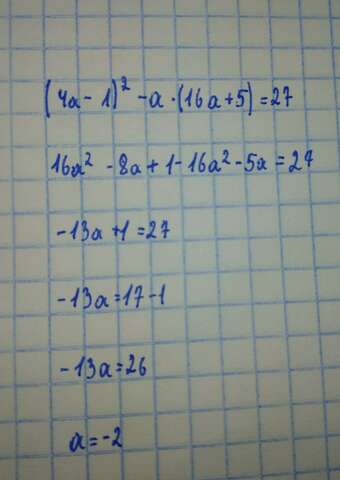 (4a - 1)² - a · (16a + 5) = 27
16a² - 8a + 1 - 16a² - 5a = 27
-13a + 1 = 27
-13a = 17 - 1
-13a = 26
a = -2